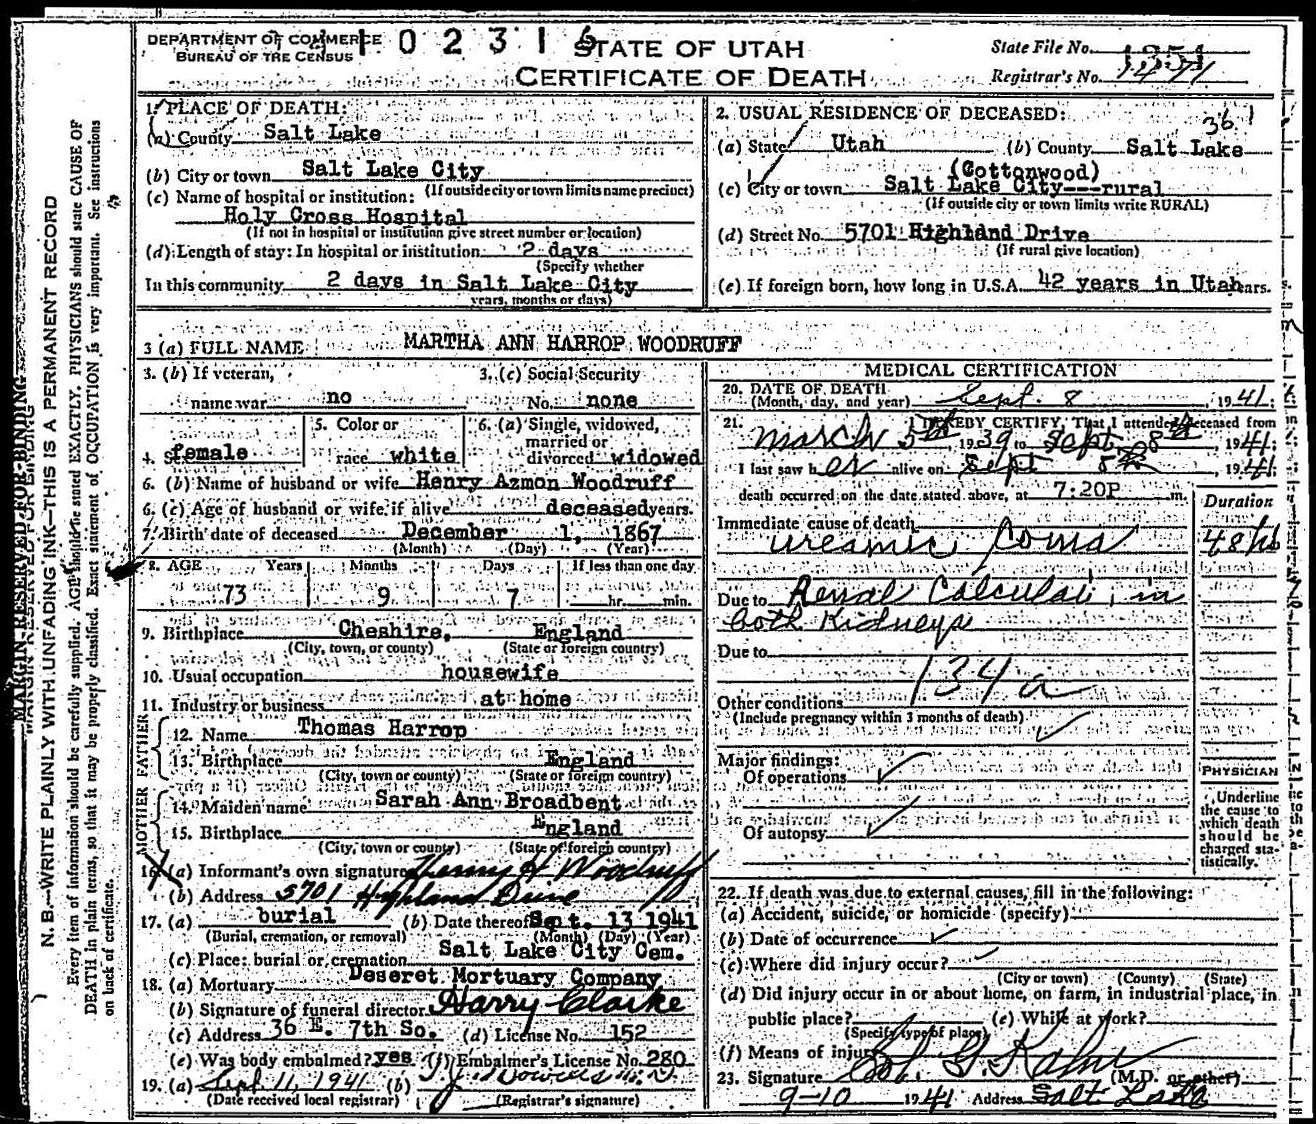 DEPARTMENT OF COMMERCE
BUREAU OF THE CENSUS
1 0 2 3 1 6
STATE OF UTAH
CERTIFICATE OF DEATH
State File No. 1351
Registrar's No. 1471
1. PLACE OF DEATH:
(a) County Salt Lake
(b) City or town Salt Lake City
(If outside city or town limits name precinct)
(c) Name of hospital or institution:
Holy Cross Hospital
(If not in hospital or institution give street number or location)
(d) Length of stay: In hospital or institution 2 days
(Specify whether
In this community 2 days in Salt Lake City
years, months or days)
2. USUAL RESIDENCE OF DECEASED:
361
(a) State Utah (b) County Salt Lake
(Cottonwood)
(c) City or town Salt Lake City---rural
(If outside city or town limits write RURAL)
(d) Street No. 5701 Highland Drive
(If rural give location)
(e) If foreign born, how long in U.S.A. 42 years in Utah ears.
3 (a) FULL NAME MARTHA ANN HARROP WOODRUFF
3. (b) If veteran,
name war no
3. (c) Social Security
No. none
4. Sex female
5. Color or
race white
6. (a) Single, widowed,
married or
divorced widowed
6. (b) Name of husband or wife Henry Azmon Woodruff
6. (c) Age of husband or wife if alive deceased years.
7. Birth date of deceased December 1, 1867
(Month) (Day) (Year)
8. AGE Years Months Days If less than one day
73 9 7 hr. min.
9. Birthplace Cheshire, England
(City, town, or county) (State or foreign country)
10. Usual occupation housewife
11. Industry or business at home
FATHER
12. Name Thomas Harrop
13. Birthplace England
(City, town or county) (State or foreign country)
MOTHER
14. Maiden name Sarah Ann Broadbent
15. Birthplace England
(City, town or county) (State or foreign country)
16. (a) Informant's own signature Henry H Woodruff
(b) Address 5701 Highland Drive
17. (a) burial (b) Date thereof Sept. 13 1941
(Burial, cremation, or removal) (Month) (Day) (Year)
(c) Place: burial or cremation Salt Lake City Cem.
18. (a) Mortuary Deseret Mortuary Company
(b) Signature of funeral director Harry Clarke
(c) Address 36 E. 7th So. (d) License No. 152
(e) Was body embalmed? yes (f) Embalmer's License No. 280
19. (a) Sept 11, 1941 (b)
(Date received local registrar) (Registrar's signature)
MEDICAL CERTIFICATION
20. DATE OF DEATH
(Month, day, and year) Sept. 8, 1941.
21. I HEREBY CERTIFY, That I attended deceased from
March 5th 1939 to Sept 8th, 1941.
I last saw her alive on Sept 8th, 1941.
death occurred on the date stated above, at 7:20P m.
Duration
Immediate cause of death
Ureamic Coma 48 hrs
Due to Renal Calculai in
both Kidneys
Due to
134a
Other conditions
(Include pregnancy within 3 months of death)
Major findings:
Of operations
Of autopsy
PHYSICIAN
Underline
the cause to
which death
should be
charged sta-
tistically.
22. If death was due to external causes, fill in the following:
(a) Accident, suicide, or homicide (specify)
(b) Date of occurrence
(c) Where did injury occur?
(City or town) (County) (State)
(d) Did injury occur in or about home, on farm, in industrial place, in
public place? (e) While at work?
(Specify type of place)
(f) Means of injury
23. Signature (M.D. or other)
9-10 1941 Address Salt Lake
MARGIN RESERVED FOR BINDING
N. B.—WRITE PLAINLY WITH UNFADING INK—THIS IS A PERMANENT RECORD
Every item of information should be carefully supplied. AGE should be stated EXACTLY. PHYSICIANS should state CAUSE OF
DEATH in plain terms, so that it may be properly classified. Exact statement of OCCUPATION is very important. See instructions
on back of certificate.